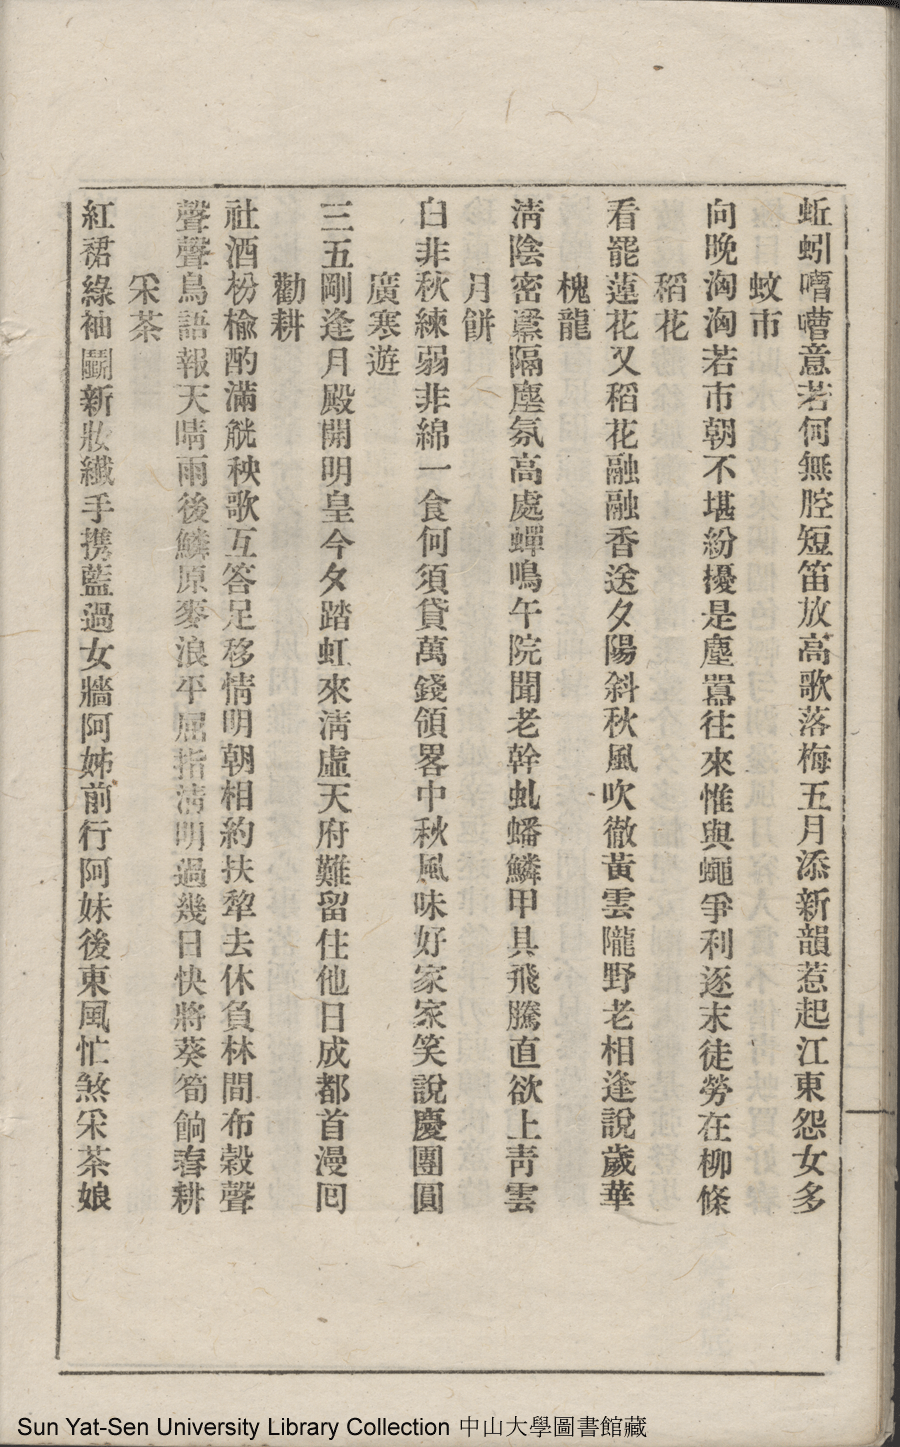 蚯蚓嘈嘈意若何無腔短笛放高歌落梅五月添新韻惹起江東怨女多
蚊市
向晚洶洶若市朝不堪紛擾是塵嚣往來惟與蠅爭利逐末徒勞在柳條
稻花
看罷蓮花又稻花融融香送夕陽斜秋風吹徹黃雲隴野老相逢說歲華
槐龍
淸陰密罩隔塵氛高處蟬鳴午院聞老幹虬蟠鱗甲具飛騰直欲上靑雲
月餅
白非秋練弱非綿一食何須貸萬錢領畧中秋風味好家家笑說慶團圓
廣寒遊
三五剛逢月殿開明皇今夕踏虹來淸虛天府難留住他日成都首漫囘
勸耕
社酒枌楡酌滿觥秧歌互答足移情明朝相約扶犂去休負林間布穀聲
聲聲鳥語報天晴雨後鱗原麥浪平屈指淸明過幾日快將葵筍餉春耕
采茶
紅裙綠袖鬭新妝纖手携藍過女牆阿姊前行阿妹後東風忙煞采茶娘
Sun Yat-Sen University Library Collection 中山大學圖書館藏